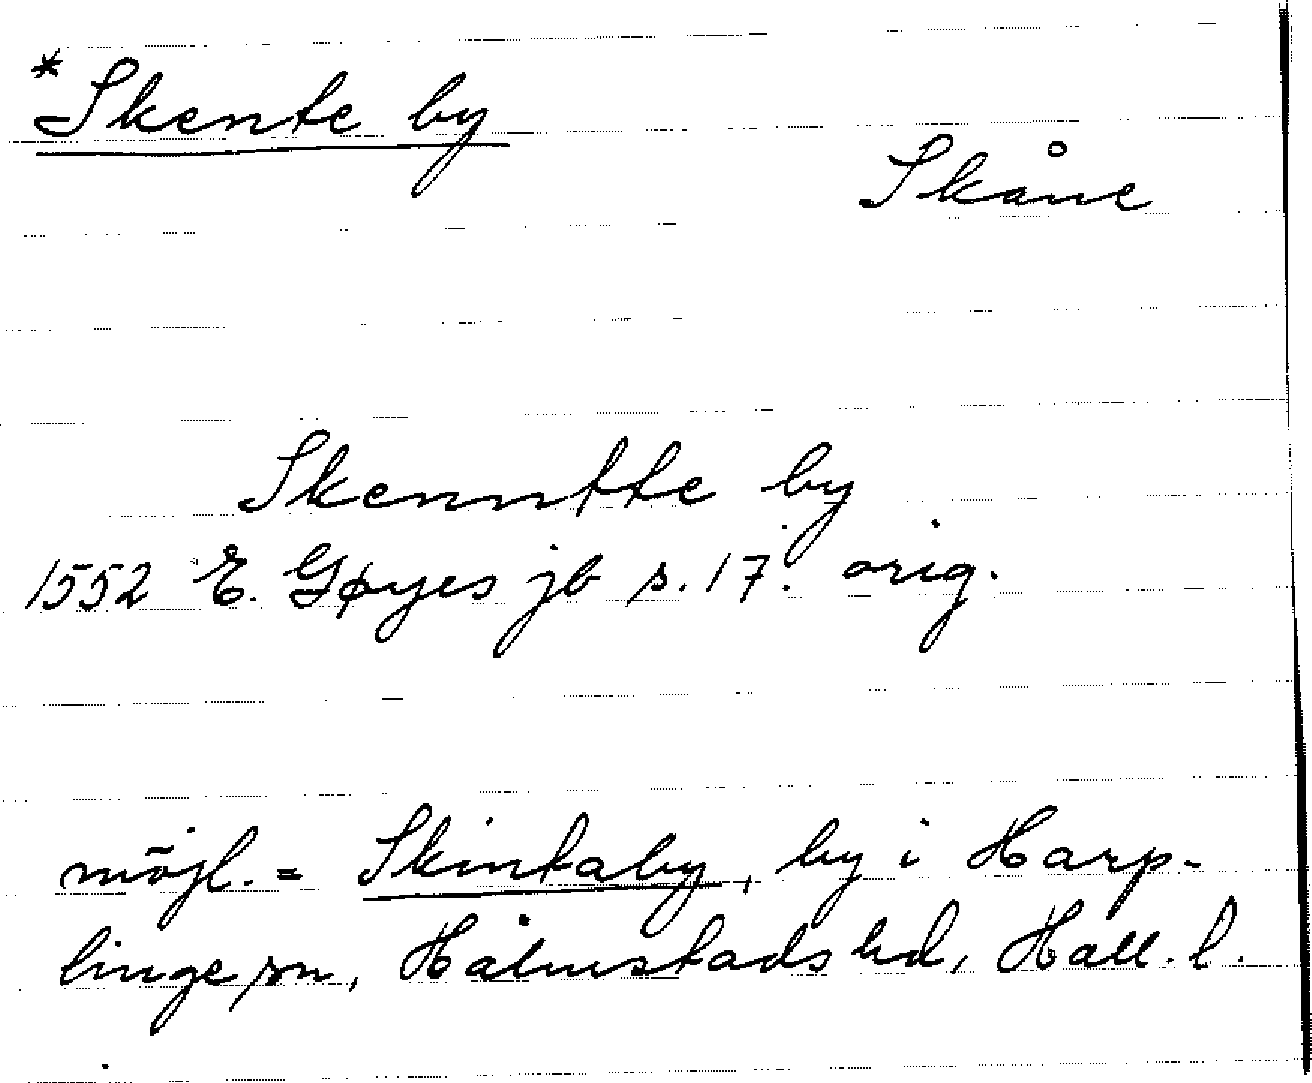 *Skente by
Skåne
Skenntte by
1552 E. Gøyes jb s. 17. orig.
möjl. = Skintaby, by i Harp-
linge sn, Halmstads hd, Hall. l.